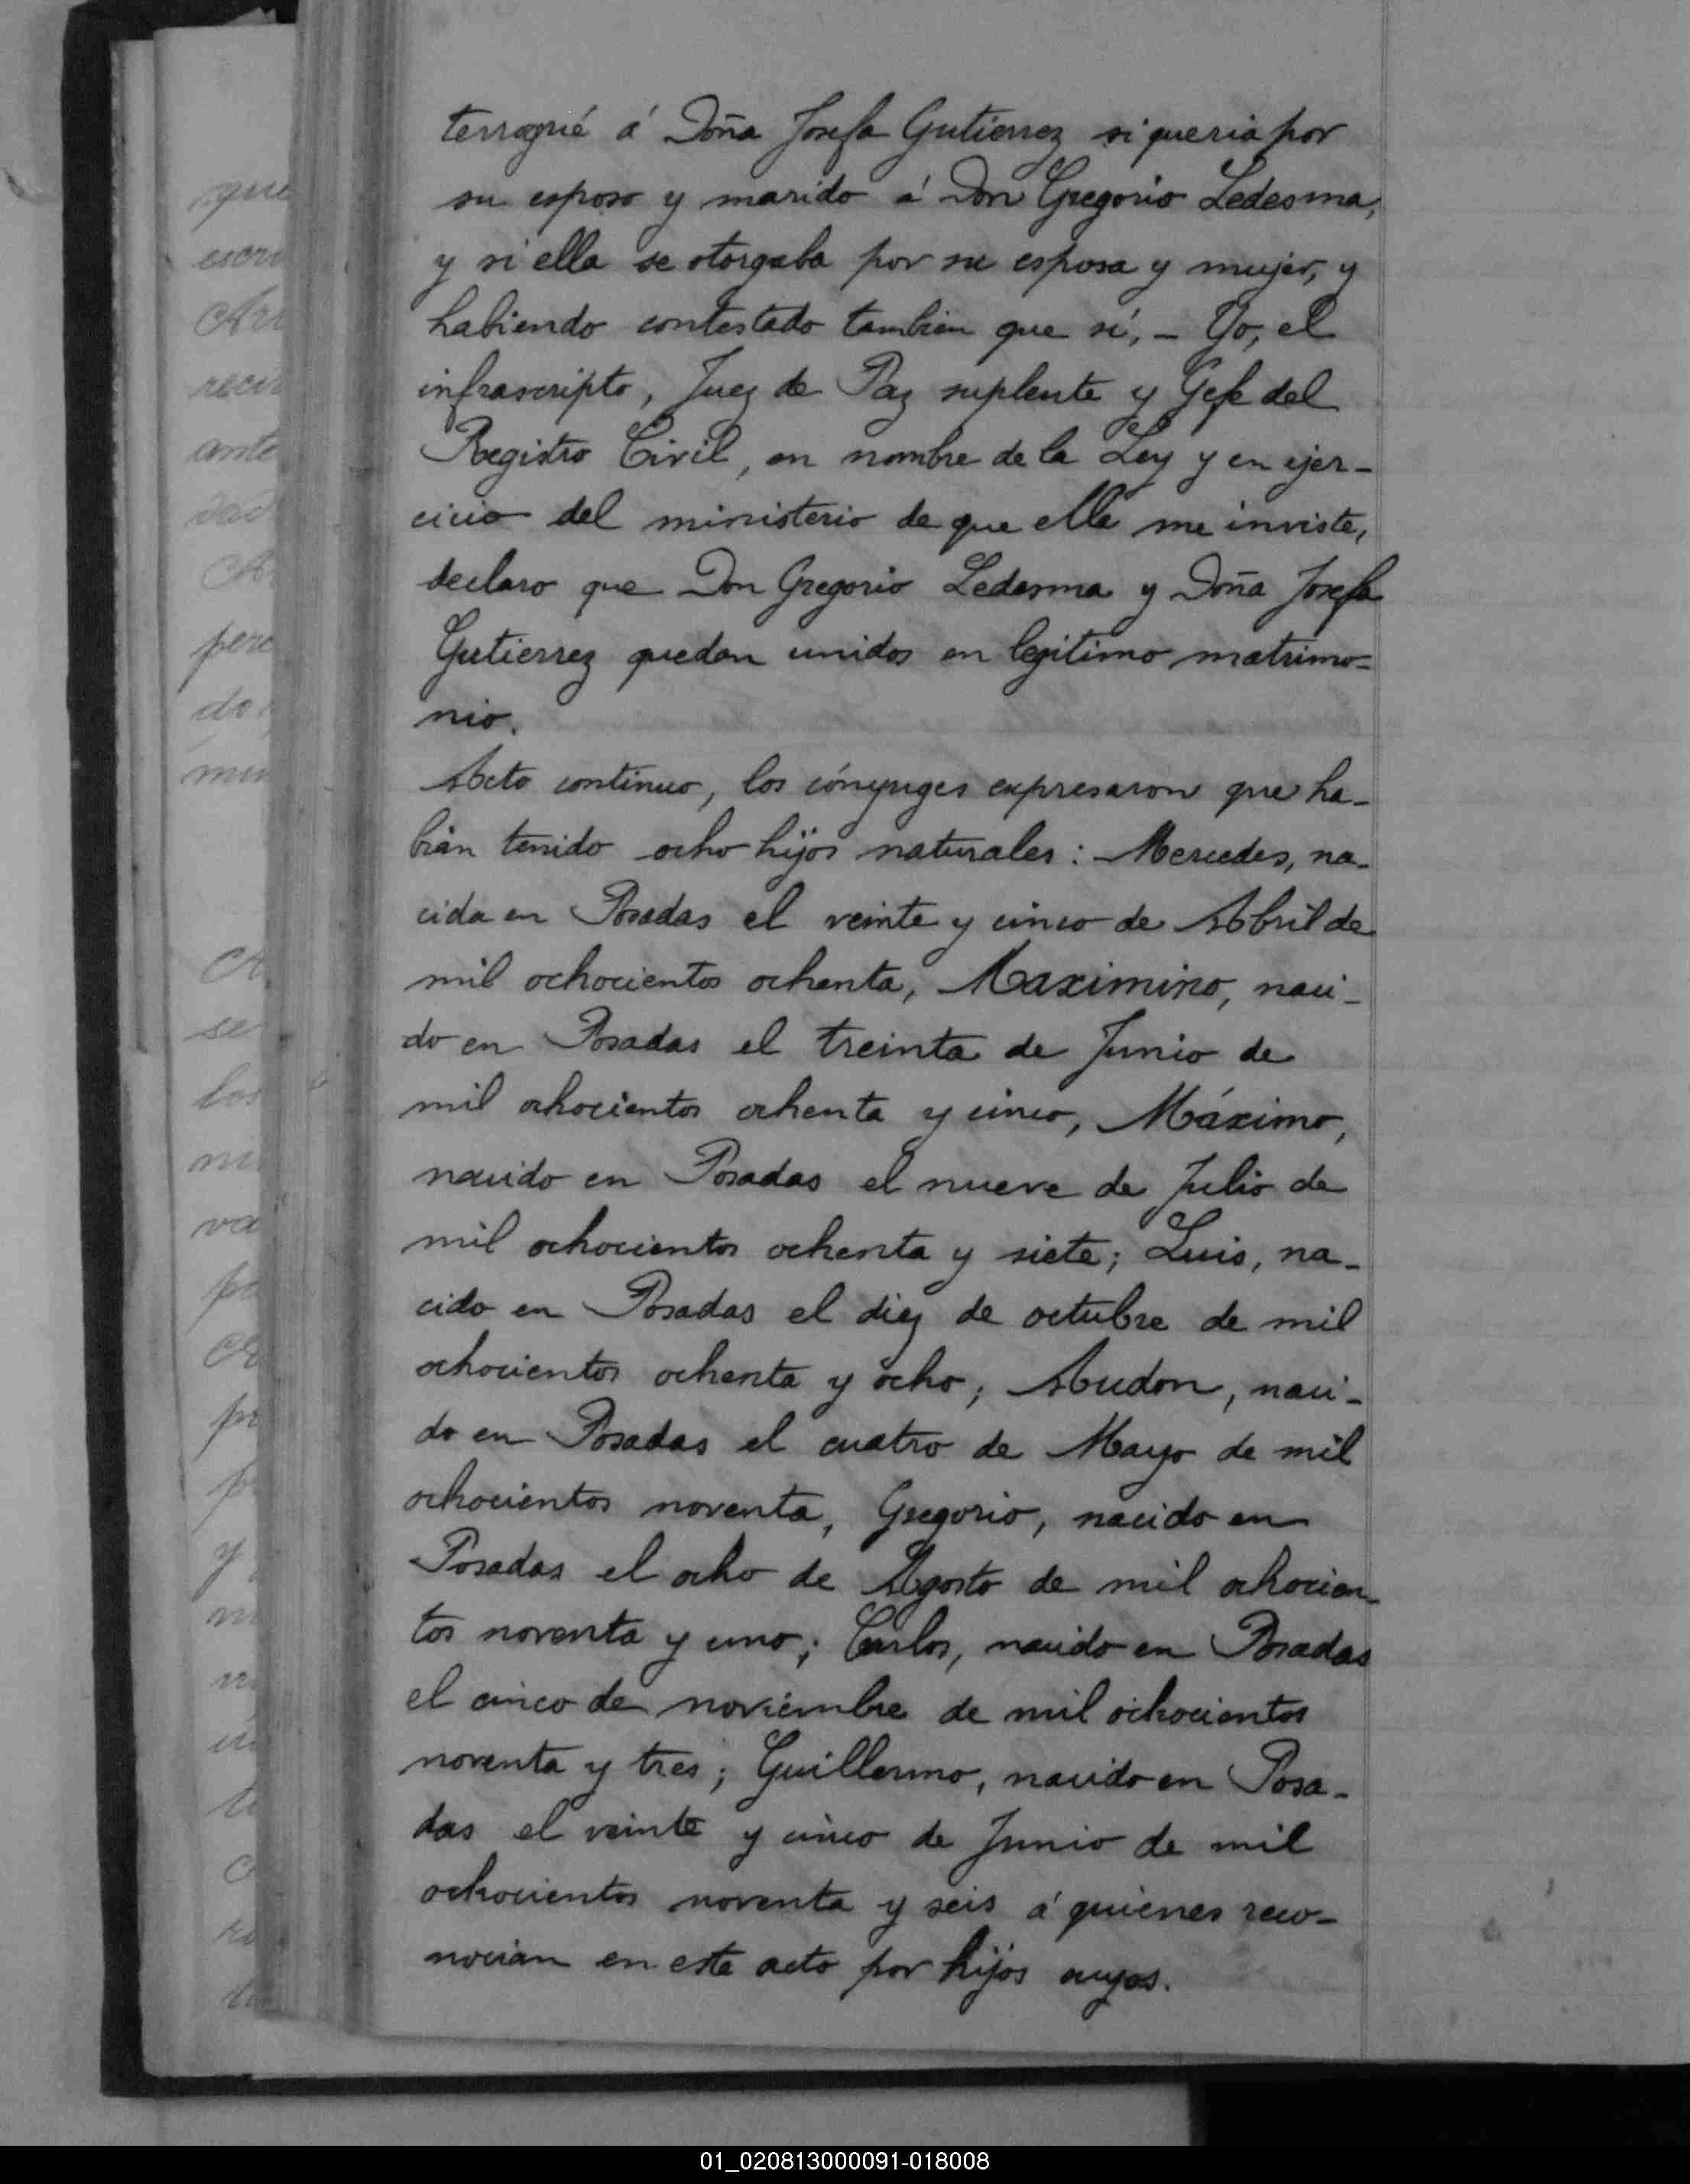 terrogué á Doña Josefa Gutierrez si queria por
su esposo y marido á Don Gregorio Ledesma,
y si ella se otorgaba por su esposa y mujer, y
habiendo contestado tambien que sí, - Yo, el
infrascripto, Juez de Paz suplente y Gefe del
Registro Civil, en nombre de la Ley y en ejer-
cicio del ministerio de que ella me inviste,
declaro que Don Gregorio Ledesma y Doña Josefa
Gutierrez quedan unidos en legitimo matrimo-
nio.
Acto continuo, los cónyuges expresaron que ha-
bian tenido ocho hijos naturales: Mercedes, na-
cida en Posadas el veinte y cinco de Abril de
mil ochocientos ochenta, Maximino, naci-
do en Posadas el treinta de Junio de
mil ochocientos ochenta y cinco, Máximo,
nacido en Posadas el nueve de Julio de
mil ochocientos ochenta y siete; Luis, na-
cido en Posadas el diez de octubre de mil
ochocientos ochenta y ocho; Audon, naci-
do en Posadas el cuatro de Mayo de mil
ochocientos noventa, Gregorio, nacido en
Posadas el ocho de Agosto de mil ochocien-
tos noventa y uno; Carlos, nacido en Posadas
el cinco de noviembre de mil ochocientos
noventa y tres; Guillermo, nacido en Posa-
das el veinte y cinco de Junio de mil
ochocientos noventa y seis á quienes reco-
nocian en este acto por hijos suyos.
01_020813000091-018008